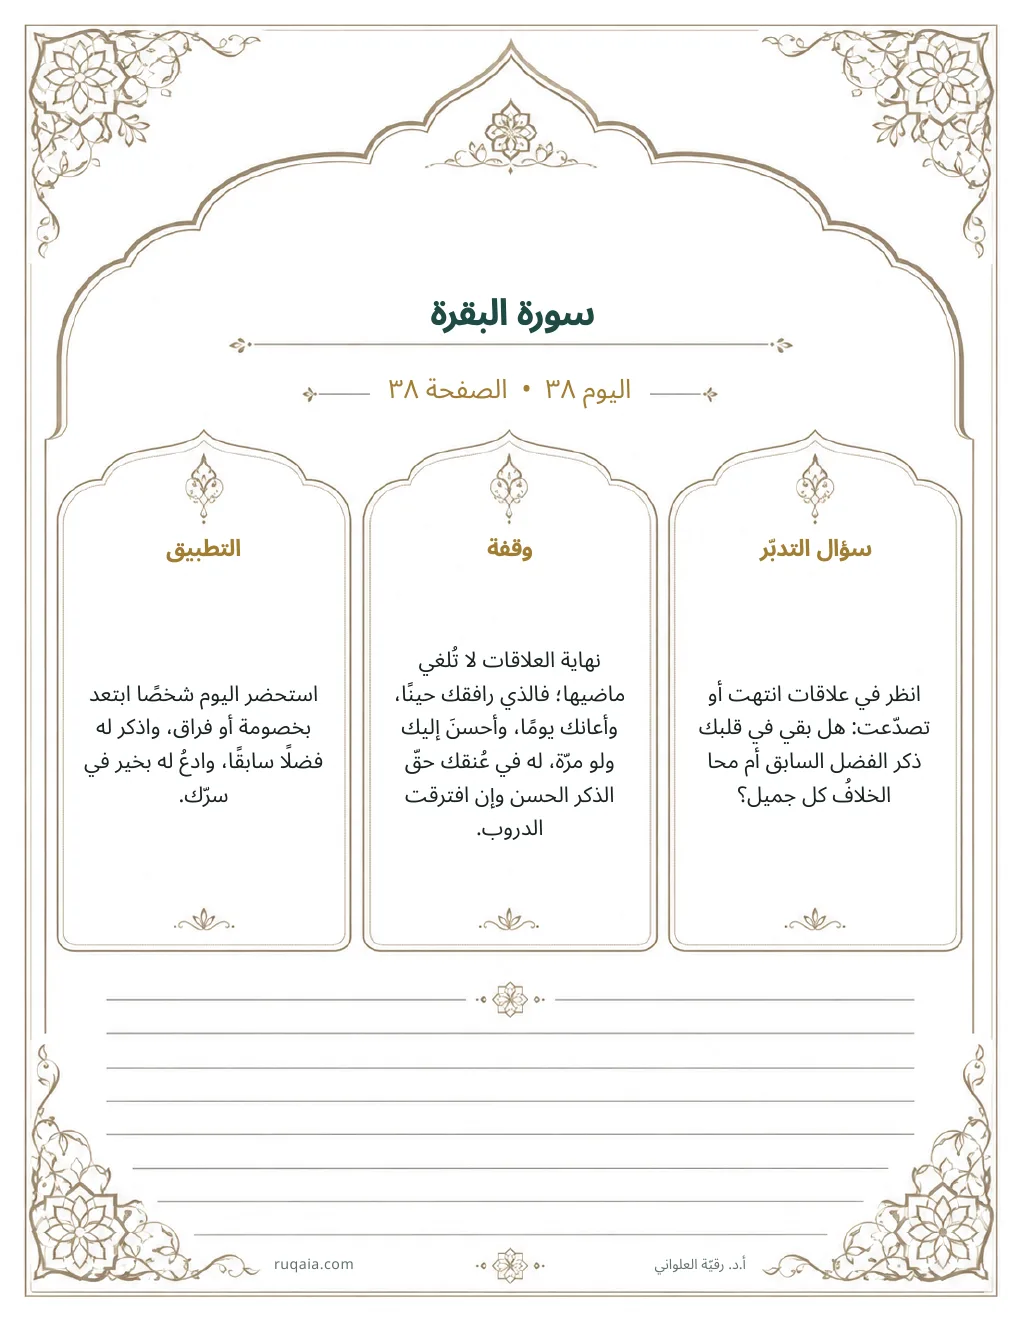 سورة البقرة
اليوم ٣٨ • الصفحة ٣٨
سؤال التدبّر
انظر في علاقات انتهت أو
تصدّعت: هل بقي في قلبك
ذكر الفضل السابق أم محا
الخلافُ كل جميل؟
وقفة
نهاية العلاقات لا تُلغي
ماضيها؛ فالذي رافقك حينًا،
وأعانك يومًا، وأحسنَ إليك
ولو مرّة، له في عُنقك حقّ
الذكر الحسن وإن افترقت
الدروب.
التطبيق
استحضر اليوم شخصًا ابتعد
بخصومة أو فراق، واذكر له
فضلًا سابقًا، وادعُ له بخير في
سرّك.
أ.د. رقيّة العلواني
ruqaia.com